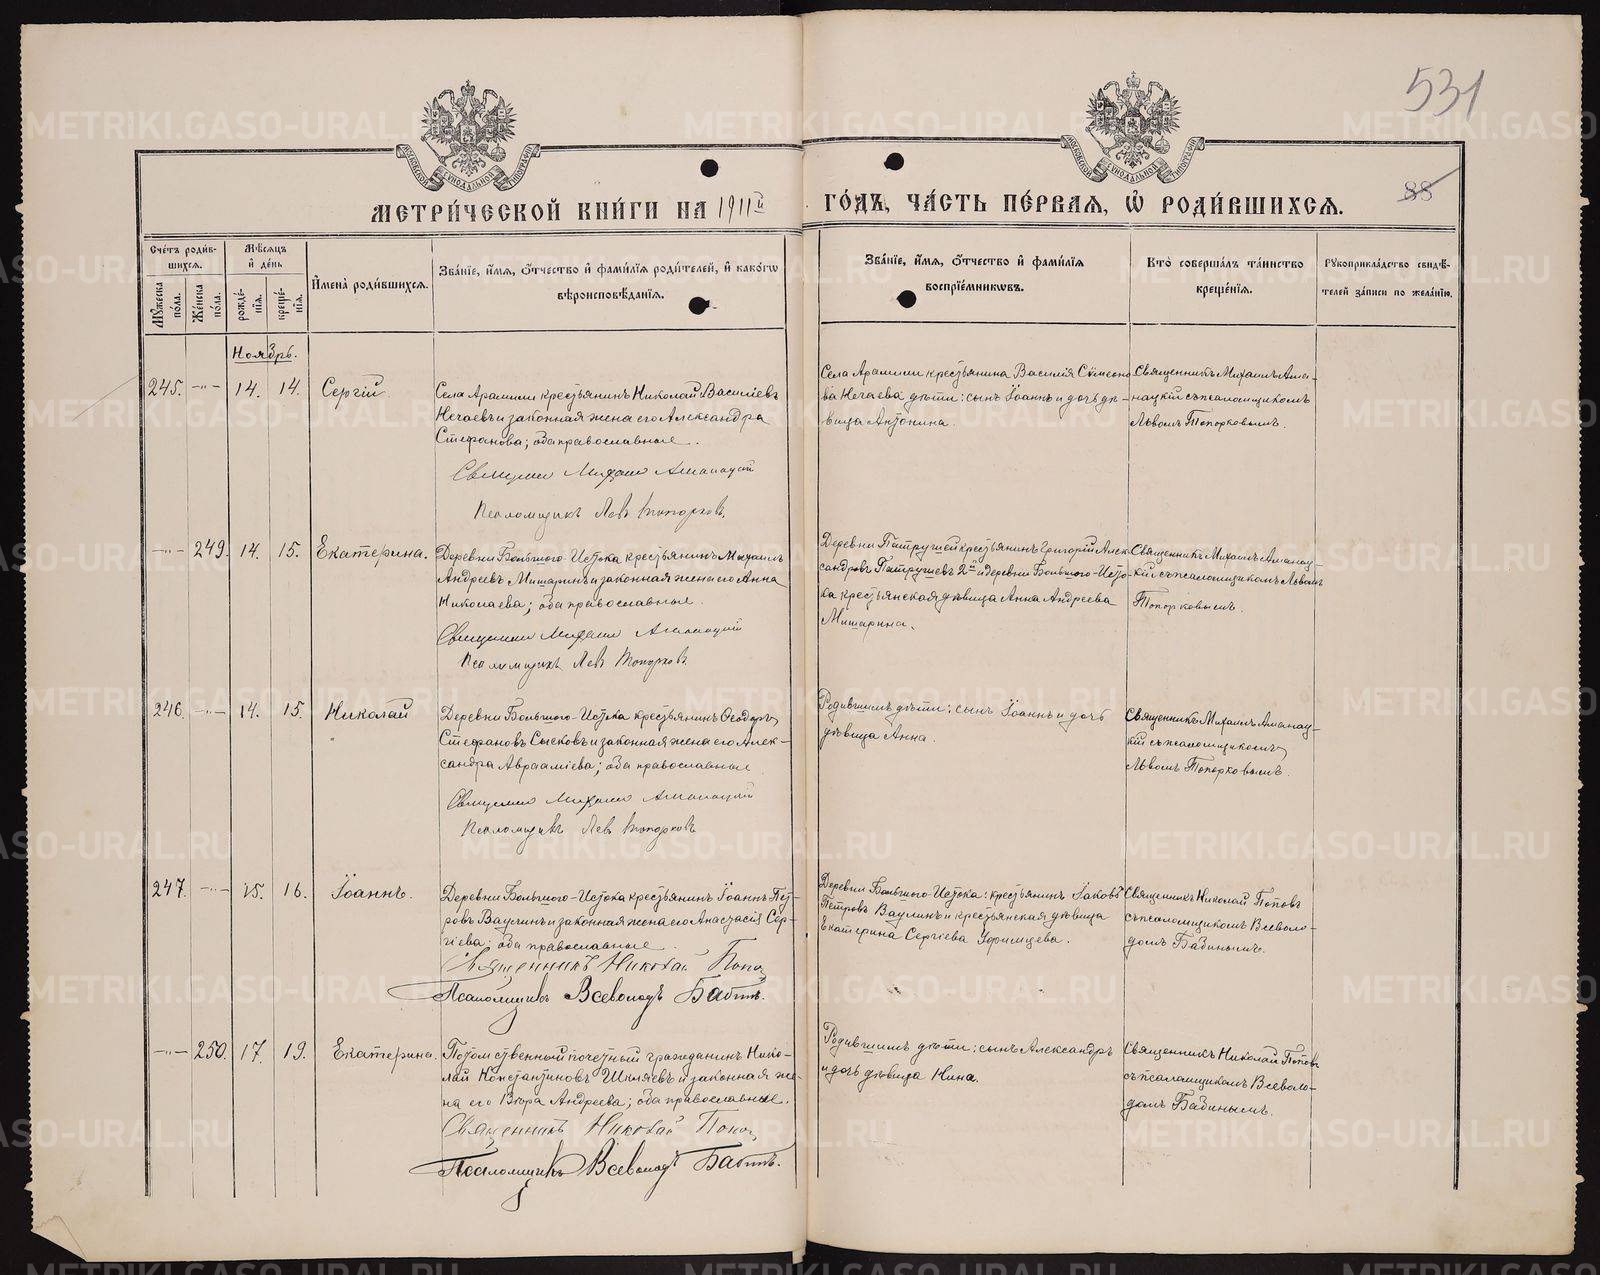 531
МЕТРИ́ЧЕСКОЙ КНИ́ГИ НА 1911й ГО́ДЪ, ЧА́СТЬ ПЕ́РВАЯ, Ѡ РОДИ́ВШИХСЯ.
88
Сче́тъ роди́в-
шихся.
Мѣ́сяцъ
и де́нь
Му́жеска
по́ла.
Же́нска
по́ла.
рожде́-
нія.
креще́-
нія.
Имена̀ роди́вшихся.
Зва́ніе, и́мя, о́тчество и фами́лія роди́телей, и како́гѡ
вѣроисповѣ́данія.
Зва́ніе, и́мя, о́тчество и фами́лія
воспріе́мниковъ.
Кто̀ соверша́лъ та́инство
креще́нія.
Рукоприкла́дство свидѣ́-
телей за́писи по жела́нію.
Ноябрь.
245. -"- 14. 14. Сергій.
Села Арамили крестьянинъ Николай Василіевъ
Нечаевъ и законная жена его Александра
Стефанова; оба православные.
Священник Михаил Аманацкий
Псаломщикъ Левъ Топорковъ.
Села Арамили крестьянина Василія Сѵмеоно-
ва Нечаева дѣти: сынъ Іоаннъ и дочь дѣ-
вица Антонина.
Священникъ Михаилъ Ама-
нацкій съ псаломщикомъ
Львомъ Топорковымъ.
-"- 249. 14. 15. Екатерина.
Деревни Большого-Истока крестьянинъ Михаилъ
Андреевъ Мишаринъ и законная жена его Анна
Николаева; оба православные.
Священник Михаил Аманацкий
Псаломщикъ Левъ Топорковъ
Деревни Патрушей крестьянинъ Григорий Алек-
сандровъ Патрушевъ 2й и деревни Большого-Исто-
ка крестьянская дѣвица Анна Андреева
Мишарина.
Священникъ Михаилъ Аманац-
кій съ псаломщикомъ Львомъ
Топорковымъ.
246. -"- 14. 15. Николай
Деревни Большого-Истока крестьянинъ Ѳеодоръ
Стефановъ Сысковъ и законная жена его Алек-
сандра Авраамiева; оба православные
Священник Михаил Аманацкий
Псаломщикъ Левъ Топорковъ
Родившимъ дѣти: сынъ Іоаннъ и дочь
дѣвица Анна.
Священникъ Михаилъ Аманац-
кій съ псаломщикомъ
Львомъ Топорковымъ.
247. -"- 15. 16. Іоаннъ.
Деревни Большого-Истока крестьянинъ Іоаннъ Пет-
ровъ Ваулинъ и законная жена его Анастасія Сер-
гіева; оба православные.
Священникъ Николай Попов
Псаломщикъ Всеволодъ Бабинъ.
Деревни Большого-Истока: крестьянинъ Іаковъ
Петровъ Ваулинъ и крестьянская дѣвица
Екатерина Сергіева Уфимцева.
Священникъ Николай Поповъ
съ псаломщикомъ Всеволо-
домъ Бабинымъ.
-"- 250. 17. 19. Екатерина.
Потомственный почетный гражданинъ Нико-
лай Константиновъ Шкляевъ и законная же-
на его Вѣра Андреева; оба православные.
Священникъ Николай Попов
Псаломщикъ Всеволодъ Бабинъ.
Родившимъ дѣти: сынъ Александръ
и дочь дѣвица Нина.
Священникъ Николай Поповъ
съ псаломщикомъ Всеволо-
домъ Бабинымъ.
METRIKI.GASO-URAL.RU